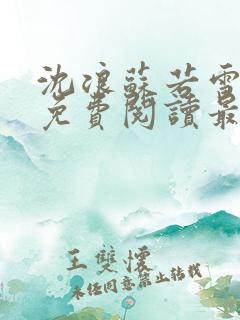 沈浪蘇若雪
免費閱讀最
王雙懷
未经同意禁止转载